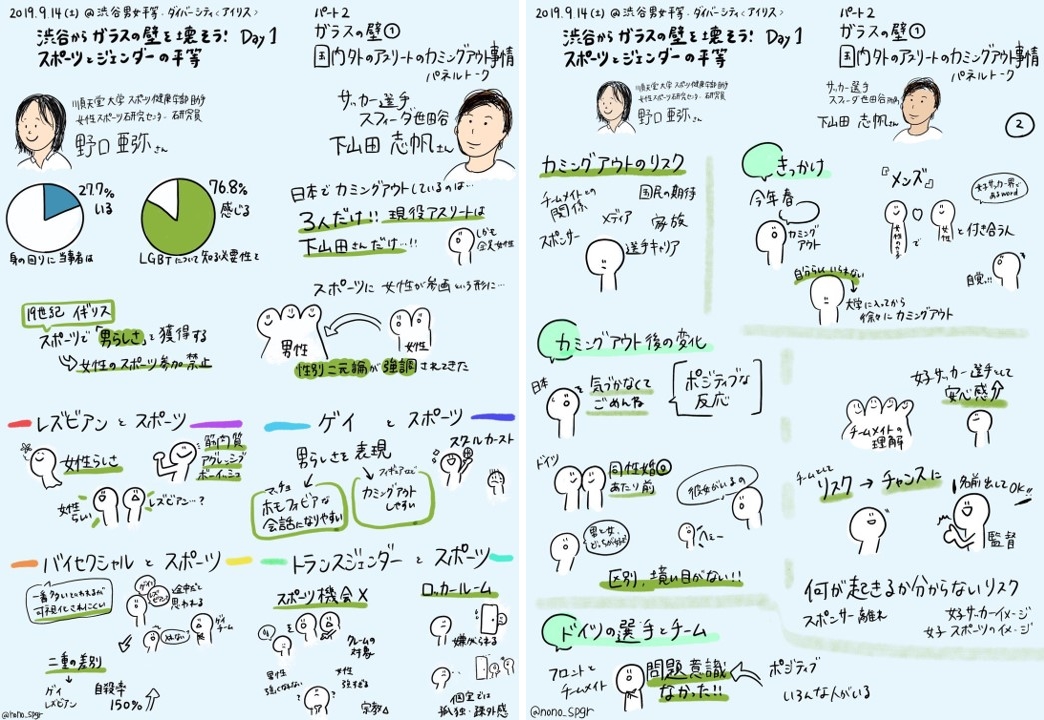 2019.9.14(土) @渋谷男女平等・ダイバーシティ<アイリス>
渋谷からガラスの壁を壊そう! Day1
スポーツとジェンダーの平等
パート2
ガラスの壁①
国内外のアスリートのカミングアウト事情
パネルトーク
順天堂大学スポーツ健康科学部助手
女性スポーツ研究センター 研究員
野口 亜弥さん
サッカー選手
スフィーダ世田谷
下山田 志帆さん
27.7%
いる
身の回りに当事者は
76.8%
感じる
LGBTについて知る必要性を
日本でカミングアウトしているのは…
3人だけ!! 現役アスリートは
下山田さんだけ…!!
しかも
全員女性
19世紀 イギリス
スポーツで「男らしさ」を獲得する
女性のスポーツ参加 禁止
スポーツに 女性が参画という形に…
男性
女性
性別二元論が強調されてきた
レズビアン と スポーツ
女性らしさ
筋肉質
アグレッシブ
ボーイッシュ
女性
らしい
レズビアン…?
ゲイ と スポーツ
男らしさを表現
マッチョ
ホモフォビアな
会話になりやすい
フィギュアなど
カミングアウト
しやすい
スクールカースト
バイセクシャル と スポーツ
一番多いといわれるが
可視化されにくい
ゲイ
レズビアン
途中だと
思われる
ゲイ
チーム
二重の差別
ゲイ
レズビアン
自殺率
150%
トランスジェンダー と スポーツ
スポーツ機会X
クレームの
対象
男性
強くなれない
女性
強すぎる
宗教
ロッカールーム
嫌がられる
個室では
孤独・疎外感
@nono_spgr
2019.9.14(土) @渋谷男女平等・ダイバーシティ<アイリス>
渋谷からガラスの壁を壊そう! Day1
スポーツとジェンダーの平等
パート2
ガラスの壁①
国内外のアスリートのカミングアウト事情
パネルトーク
順天堂大学スポーツ健康科学部助手
女性スポーツ研究センター 研究員
野口 亜弥さん
サッカー選手
スフィーダ世田谷
下山田 志帆さん
2
カミングアウトのリスク
チームメイトとの
関係
国民の期待
メディア
家族
スポンサー
選手キャリア
きっかけ
今年春
カミング
アウト
自分らしくいられない
大学に入ってから
徐々にカミングアウト
『メンズ』
女子サッカー界で
あるword
女性
で
女性
と付き合う人
自覚!!
カミングアウト後の変化
日本
気づかなくて
ごめんね
ポジティブな
反応
ドイツ
同性婚
あたり前
彼女がいるの
へぇ〜
男と女
どっちが好き
区別、境い目がない!!
女子サッカー選手として
安心感
チームメイトの
理解
チームとして
リスク → チャンスに
名前出してOK!!
監督
何が起きるか分からないリスク
スポンサー離れ
女子サッカーイメージ
女子スポーツのイメージ
ドイツの選手とチーム
フロントと
チームメイト
問題意識
なかった!!
ポジティブ
いろんな人がいる
@nono_spgr